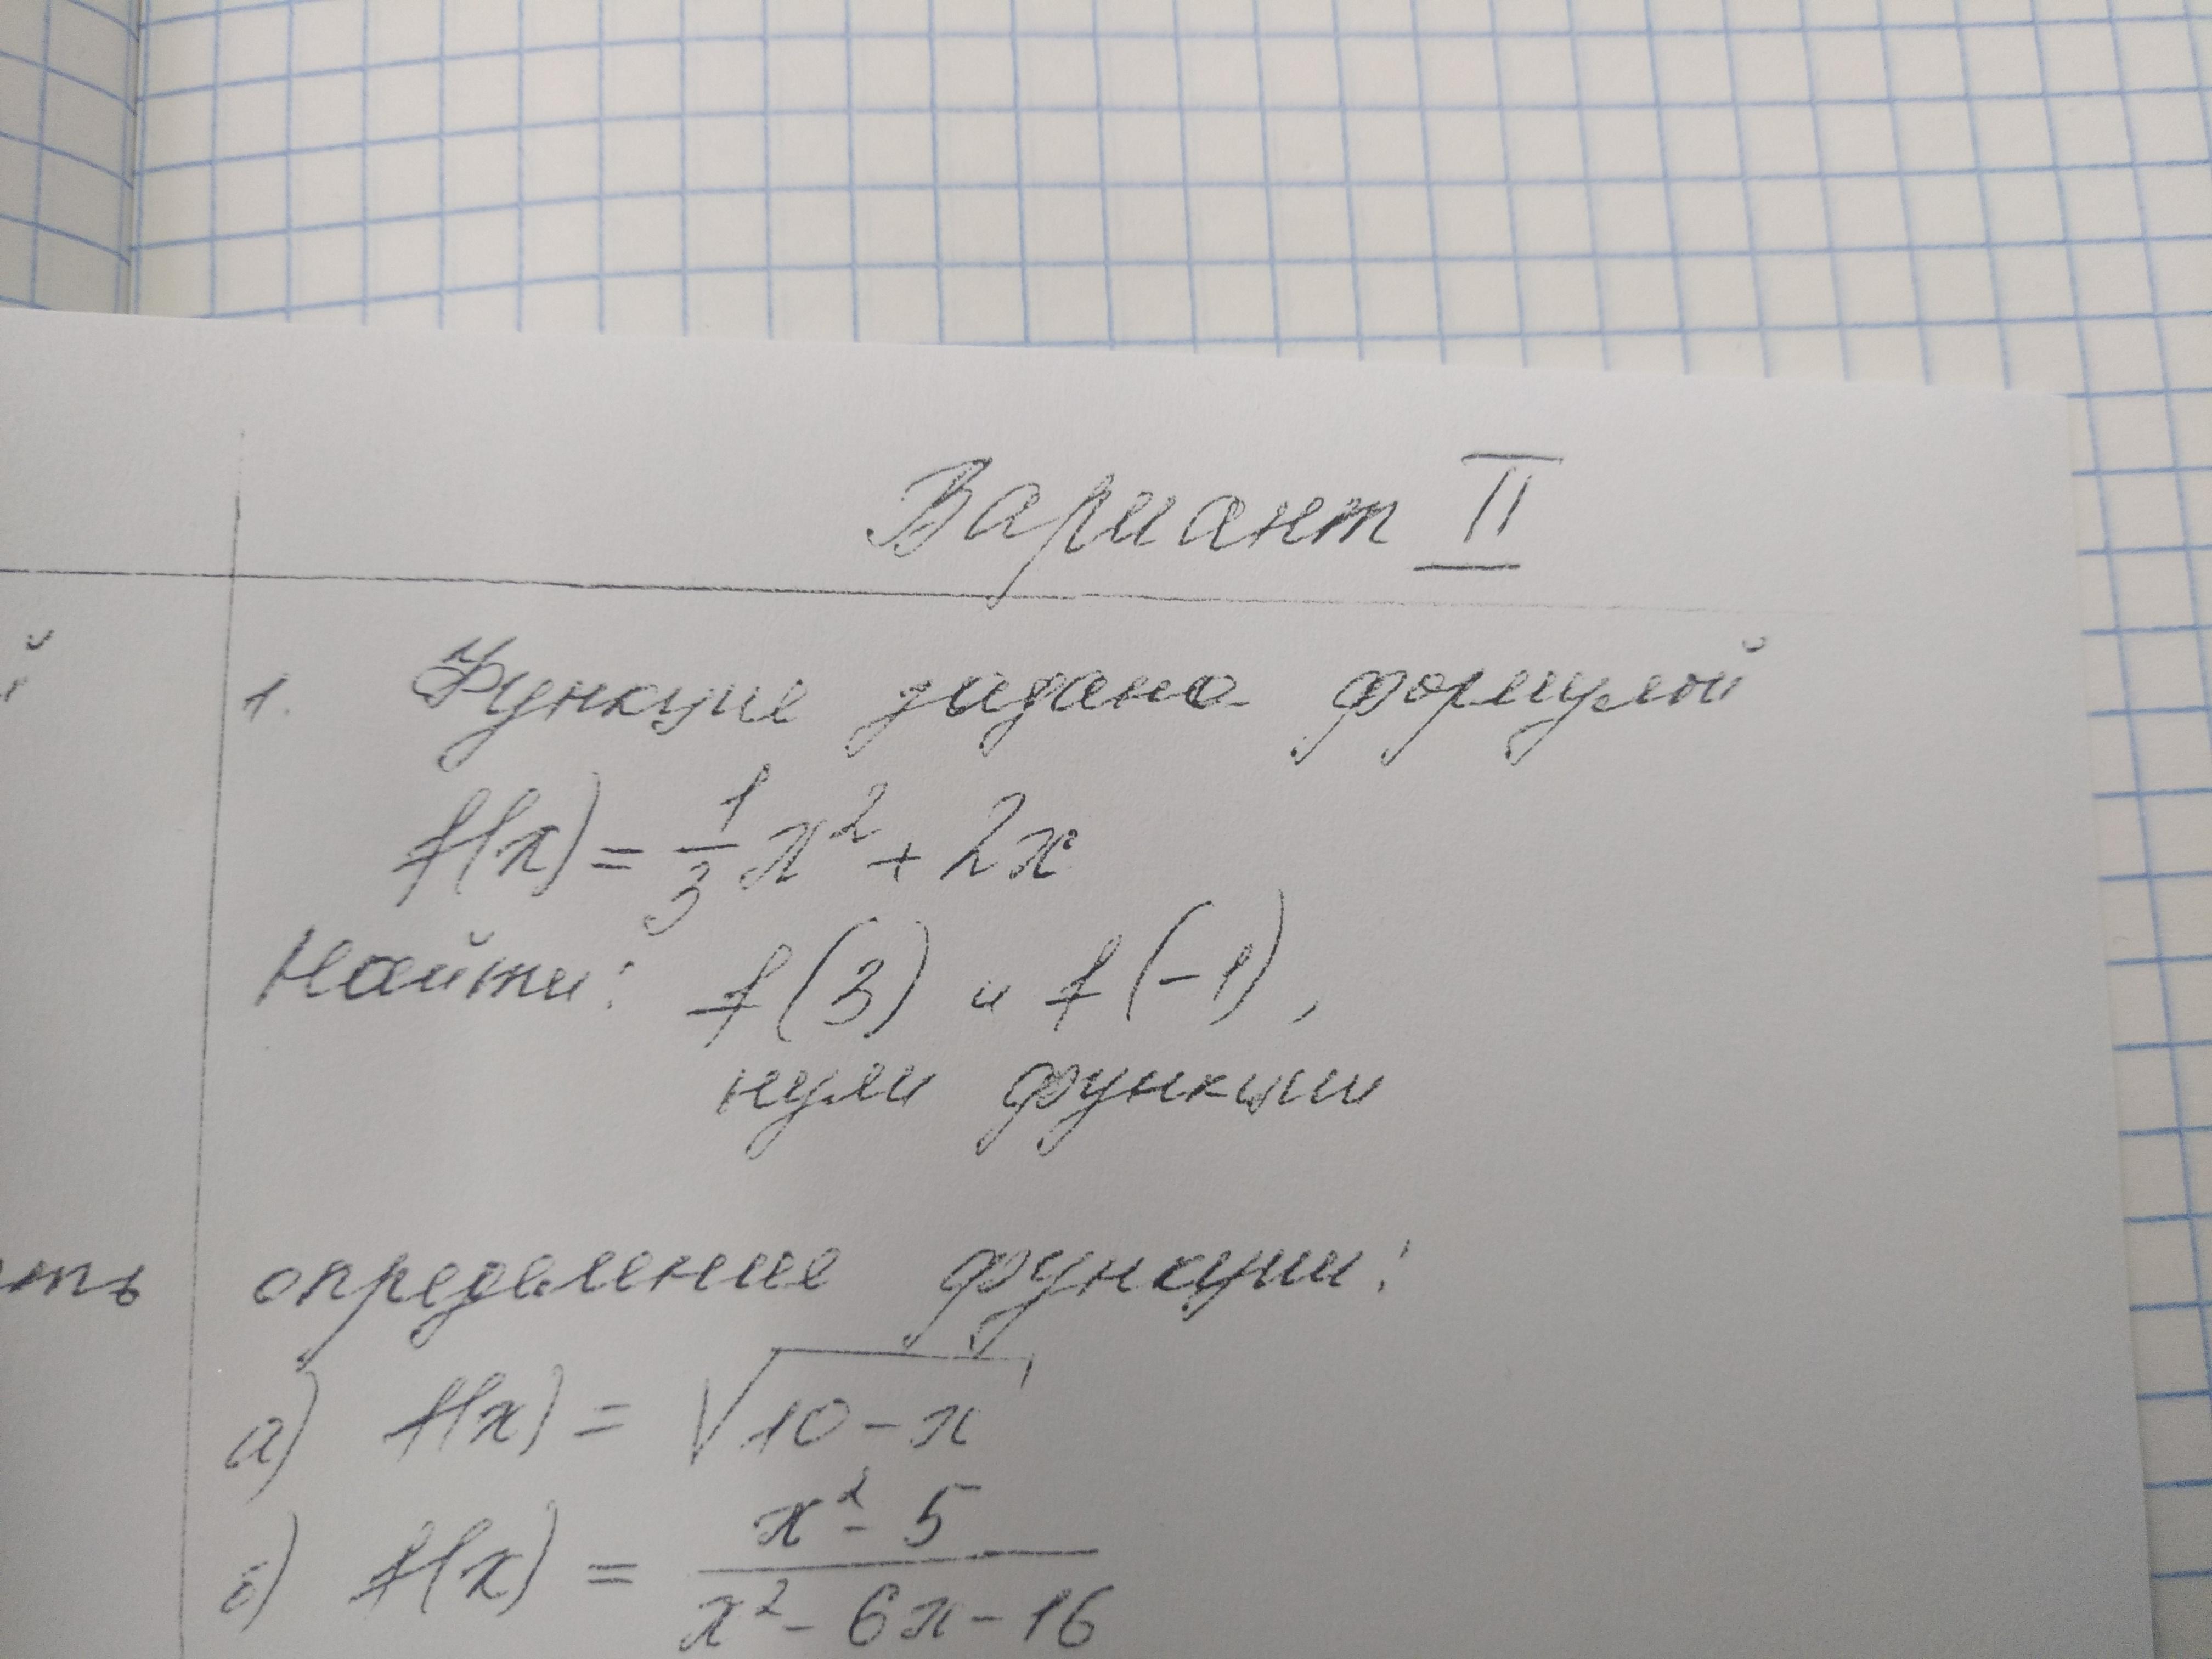 Вариант II
й
1. Функция задана формулой
f(x) = 1/3 x² + 2x
Найти: f(3) и f(-1),
нули функции
ть определение функции:
а) f(x) = √(10 - x)
б) f(x) = (x² - 5)/(x² - 6x - 16)